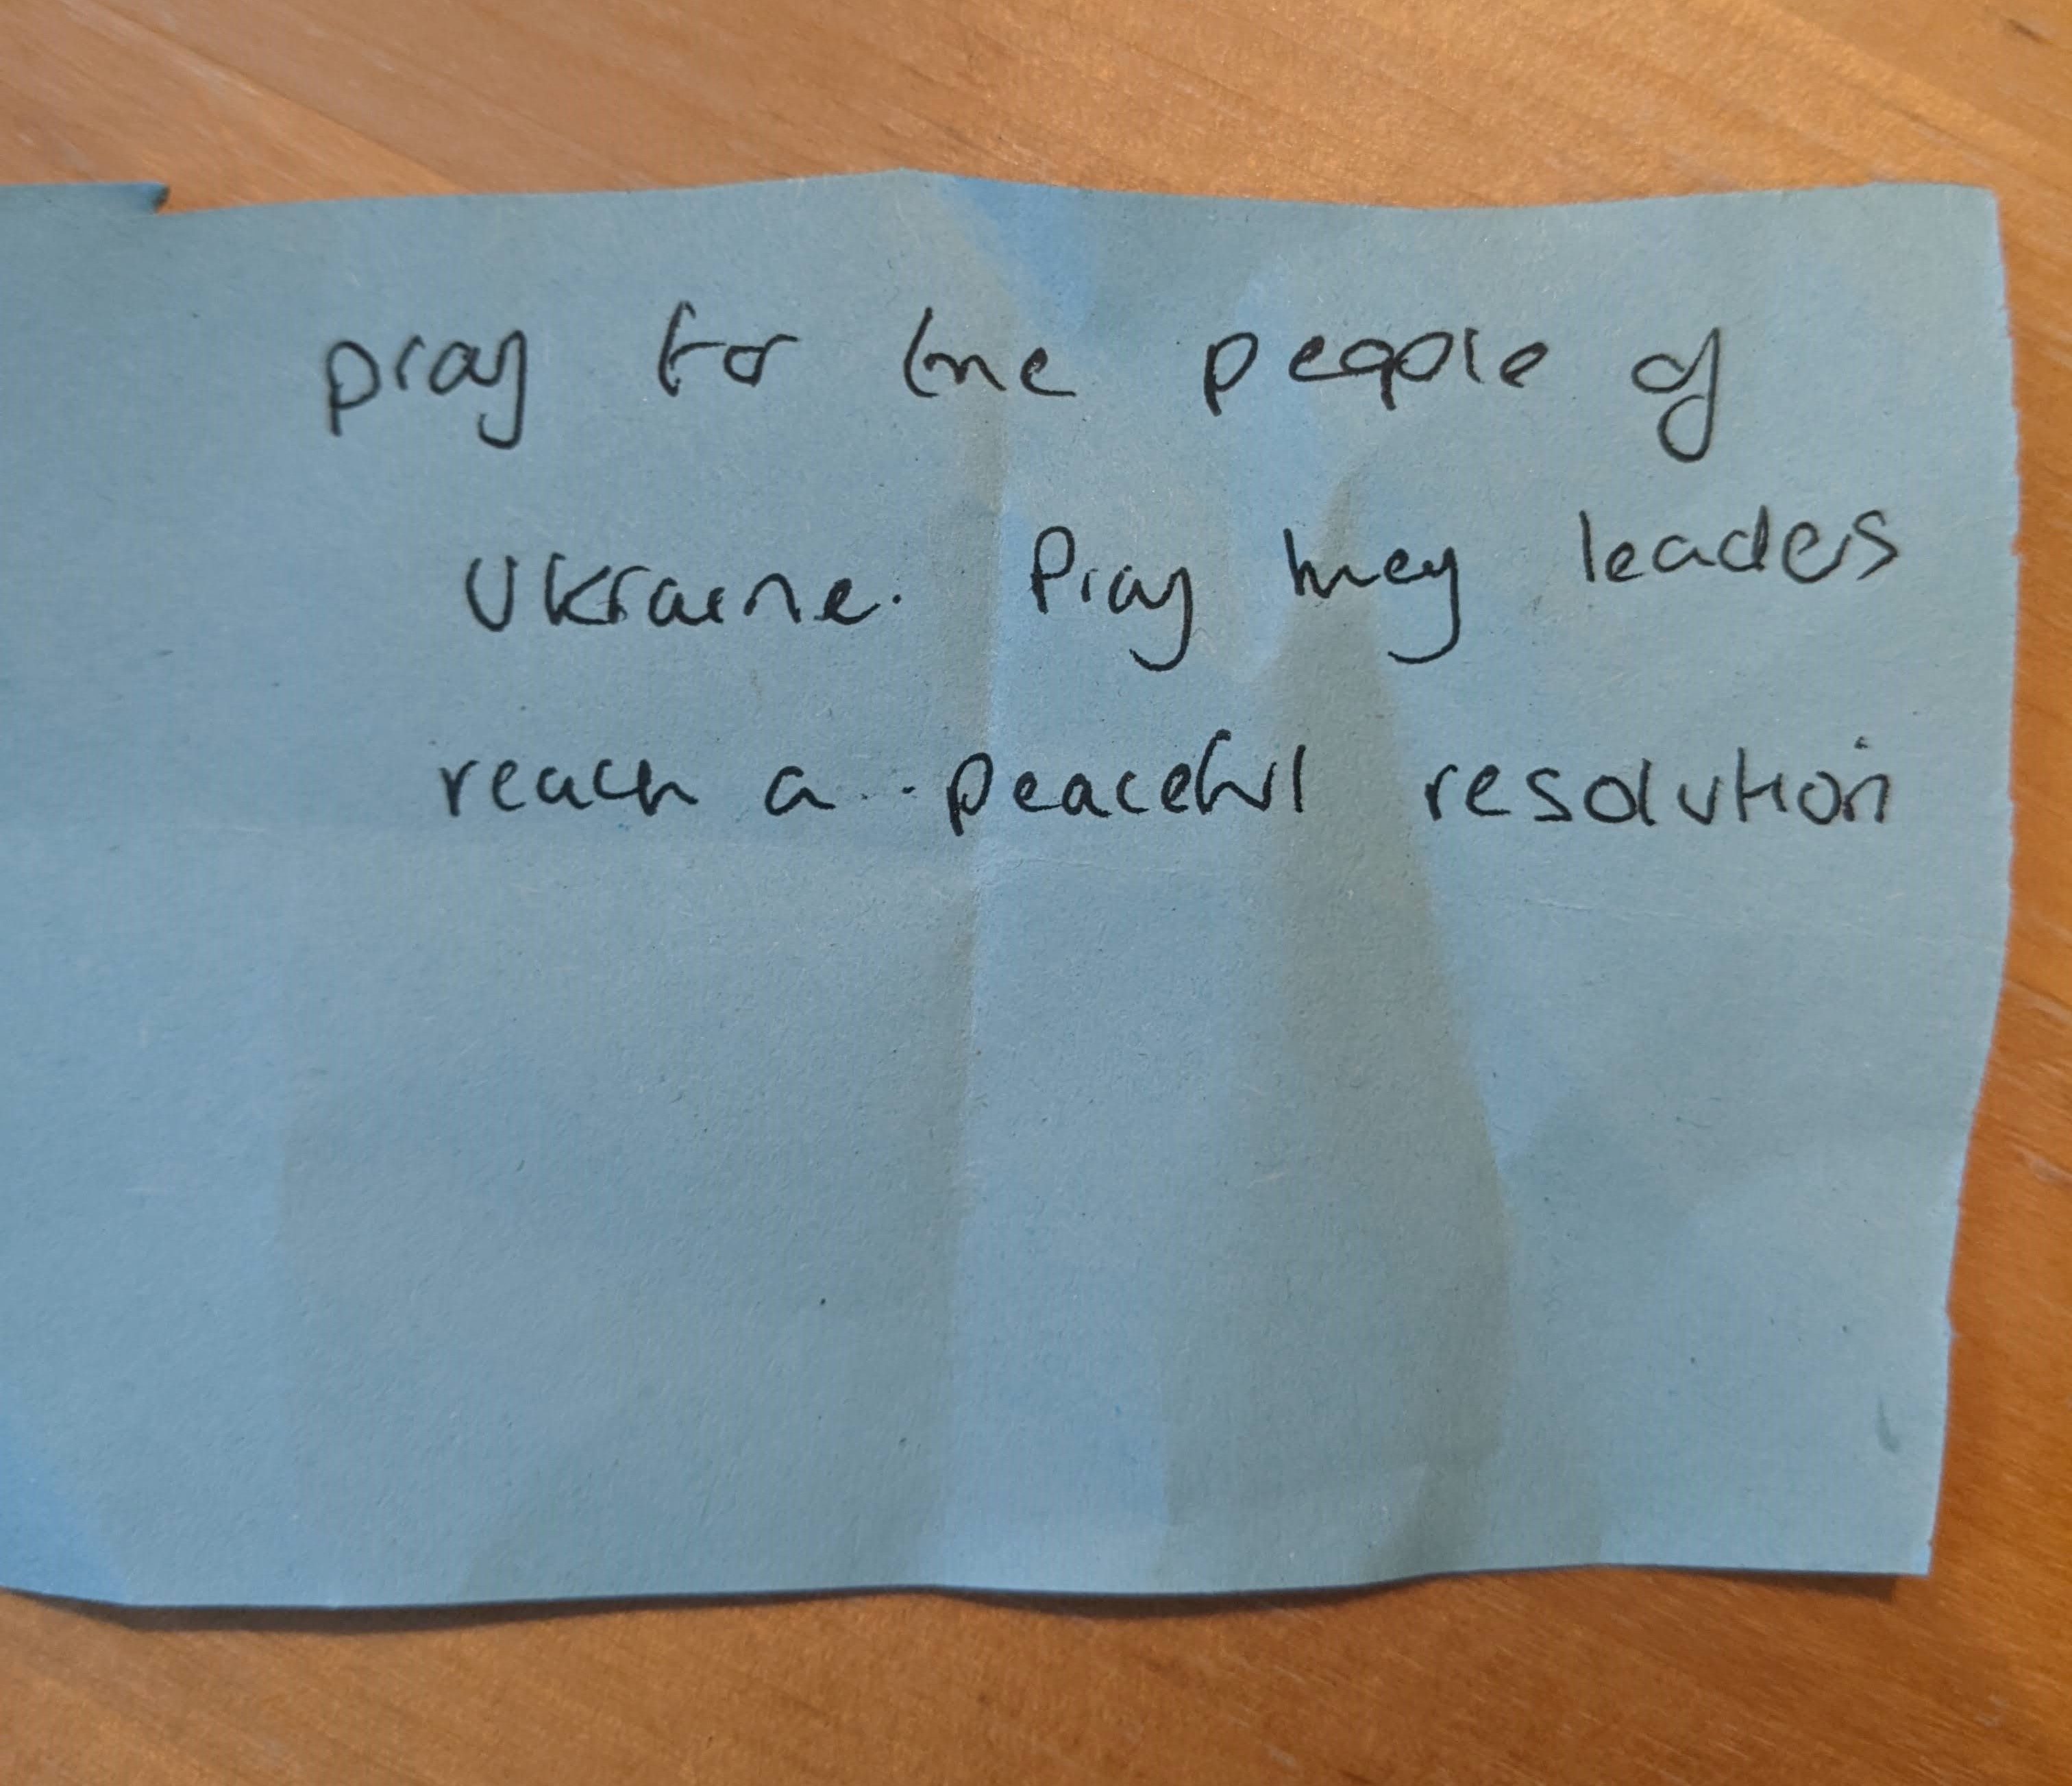 pray for the people of
Ukraine. Pray they leaders
reach a peaceful resolution